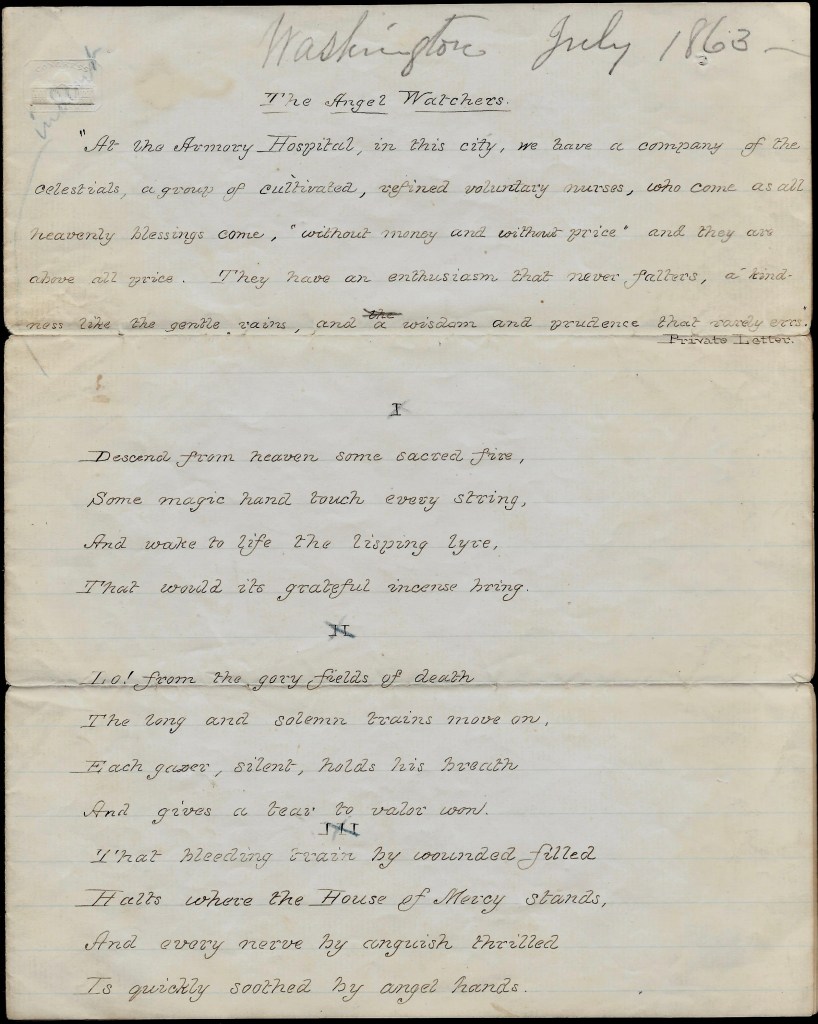 Washington July 1863 —
The Angel Watchers.
"At the Armory Hospital, in this city, we have a company of the
celestials, a group of cultivated, refined voluntary nurses, who come as all
heavenly blessings come, "without money and without price" and they are
above all price. They have an enthusiasm that never falters, a kind-
ness like the gentle rains, and the a wisdom and prudence that rarely errs."
Private Letter.
I
Descend from heaven some sacred fire,
Some magic hand touch every string,
And wake to life the lisping lyre,
That would its grateful incense bring.
II
Lo! from the gory fields of death
The long and solemn trains move on,
Each gazer, silent, holds his breath
And gives a tear to valor won.
III
That bleeding train by wounded filled
Halts where the House of Mercy stands,
And every nerve by anguish thrilled
Is quickly soothed by angel hands.